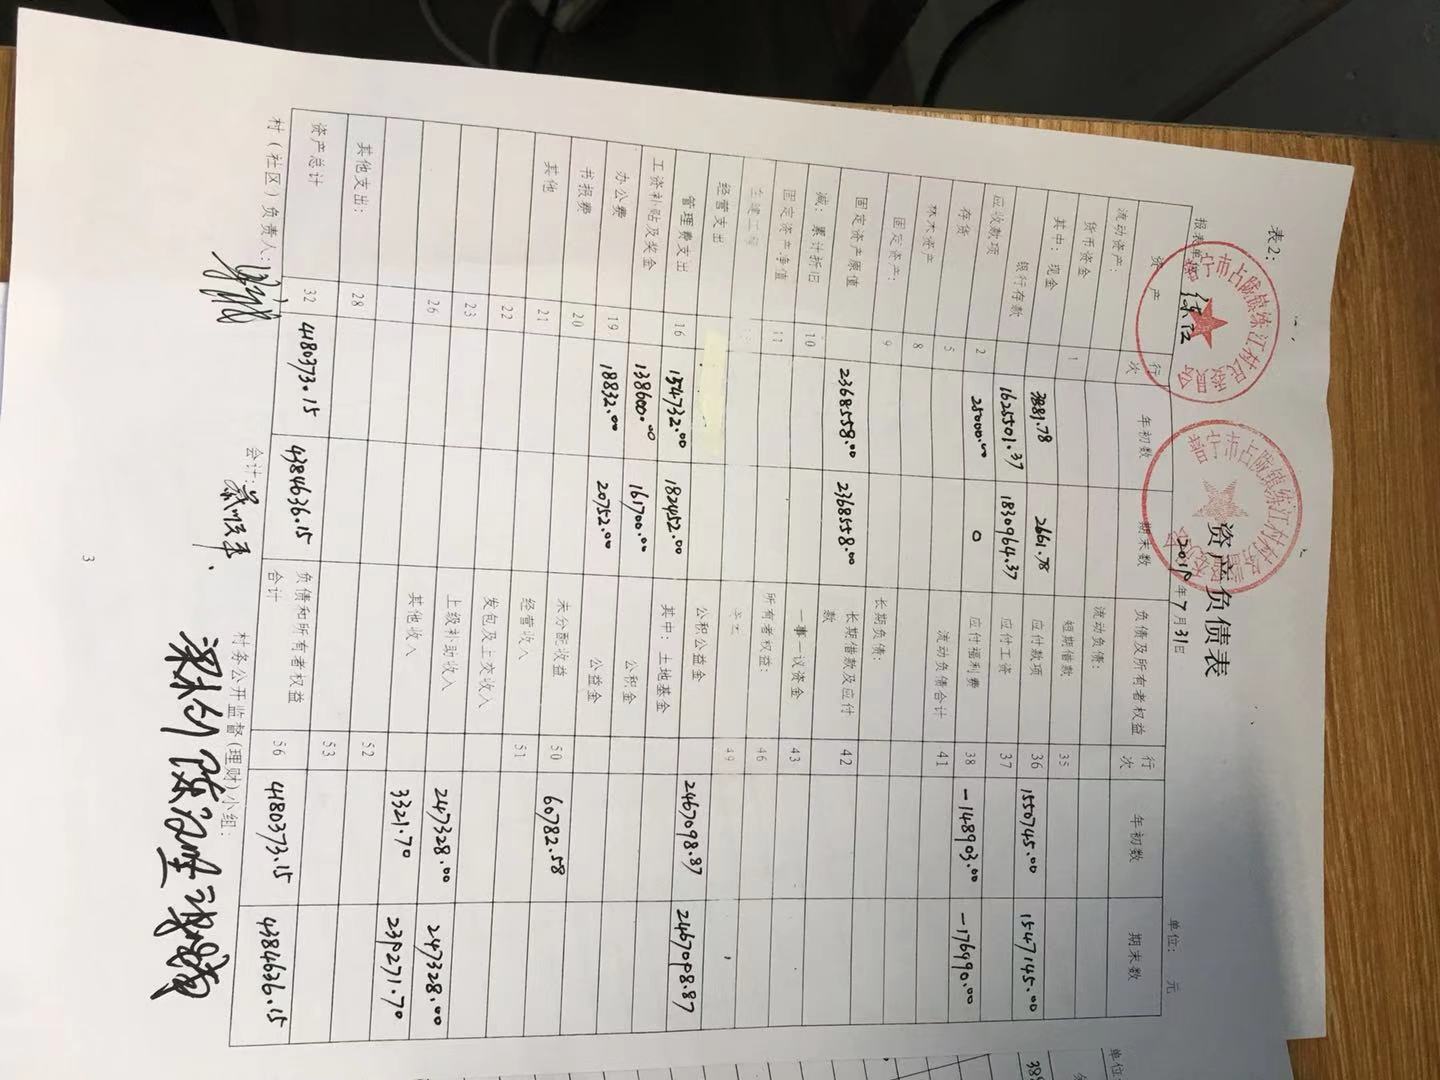 表2:
资产负债表
报表单位: 练江 2019年7月31日 单位: 元
资 产 行次 年初数 期末数 负债及所有者权益 行次 年初数 期末数
流动资产: 流动负债:
货币资金 1 短期借款 35
其中: 现金 3881.78 2661.78 应付款项 36 1550745.00 1547145.00
银行存款 1625501.37 1830964.37 应付工资 37
应收款项 2 25000.00 0 应付福利费 38 -148903.00 -176990.00
存货 5 流动负债合计 41
林木资产 8
固定资产: 9 长期负债:
固定资产原值 2368558.00 2368558.00 长期借款及应付款 42
减: 累计折旧 10 一事一议资金 43
固定资产净值 11 所有者权益: 46
在建工程 49
经营支出 公积公益金 2467098.87 2467098.87
管理费支出 16 157432.00 182452.00 其中: 土地基金
工资补贴及奖金 138600.00 161700.00 公积金
办公费 19 18832.00 20752.00 公益金
书报费 20 未分配收益 50 60782.58
其他 21 经营收入 51
22 发包及上交收入
23 上级补助收入 247328.00 247328.00
26 其他收入 3321.70 239271.70
其他支出: 28 52
53
资产总计 32 4180373.15 4384636.15 负债和所有者权益合计 56 4180373.15 4384636.15
村(社区)负责人: 会计: 村务公开监督(理财)小组:
3